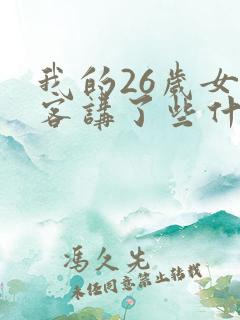 我的26歲女
客講了些什
馮久先
未经同意禁止转载